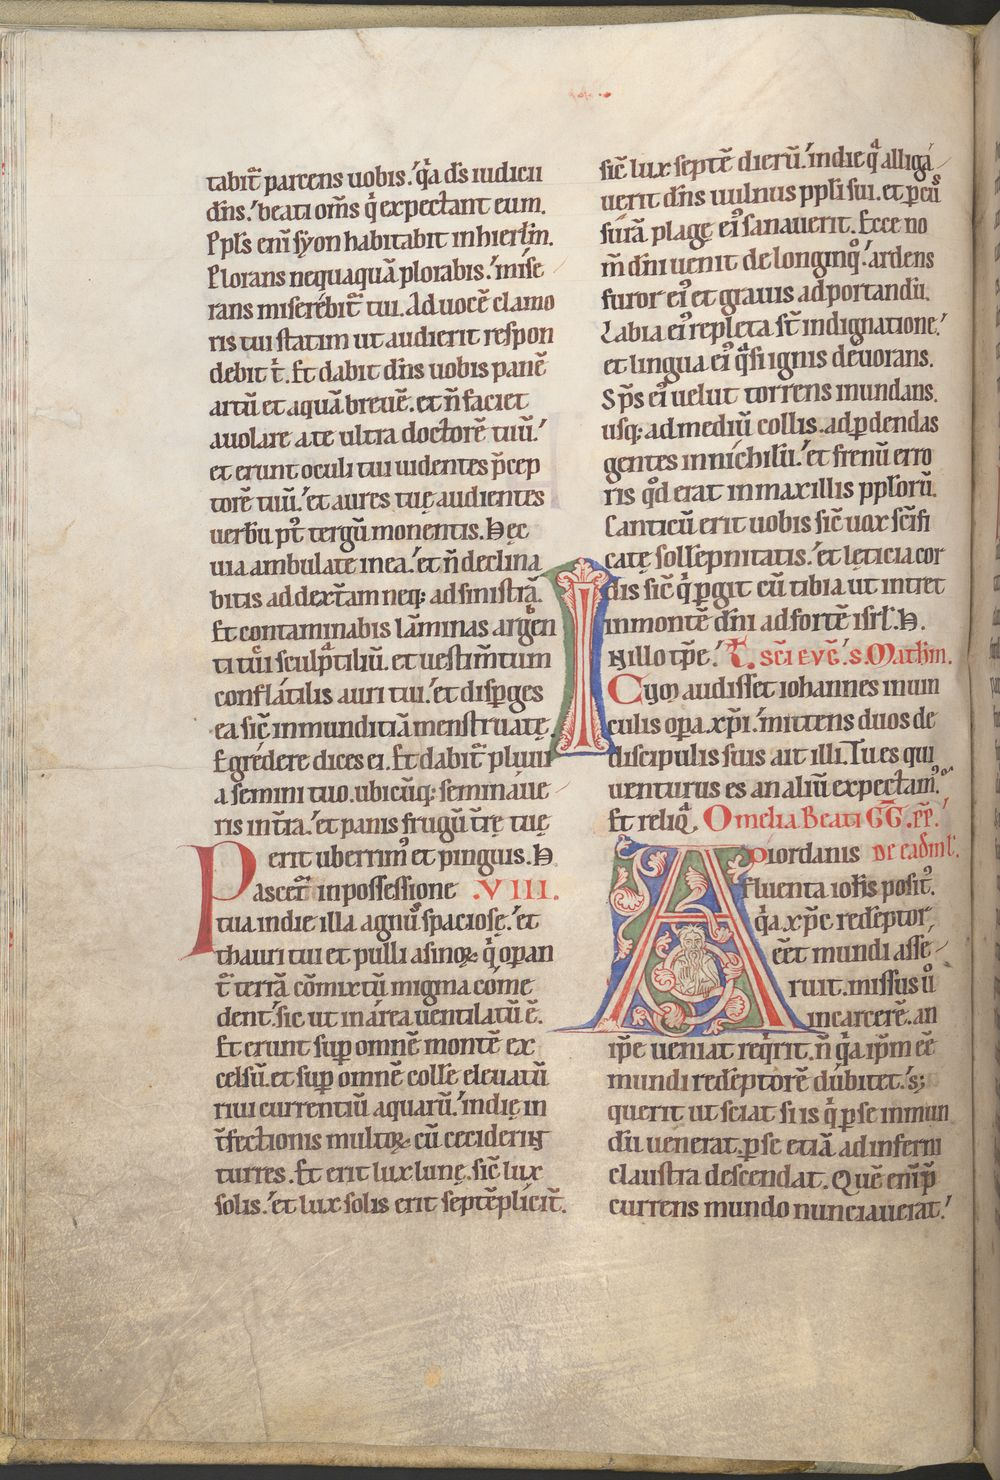 tabit᷒ parcens uobis. q̇a ds̄ iudicii
dn̄s. beati om̄s q̇ expectant eum.
Ppl̄s eni᷒ syon habitabit in hierl̄m.
Plorans nequaquā plorabis. mise
rans miserébit᷒ tui. Ad uocē clamo
ris tui statim ut audierit respon
debit t̄. Et dabit dn̄s uobis panē
artū et aquā breuē. et n̄ faciet
auolare a te ultra doctorē tuū.
et erunt oculi tui uidentes p̄cep
torē tuū. et aures tuę audientes
uerbū pꝰ tergū monentis. Hęc
uia ambulate in ea. et n̄ declina
bitis ad dext̄am neq; ad sinistrā.
Et contaminabis lāminas argen
ti tui sculptiliū. et uestim̄tum
conflátilis auri tui. et disꝑges
ea sic̄ inmunditiā menstruatę.
Egrédere dices ei. Et dabit᷒ pluui
a semini tuo. ubicūq; semináue
ris in t̄ra. et panis frugū t̄rę tuę
erit uberrimꝰ et pinguis. H
Pascet᷒ in possessione .VIII.
tua in die illa agnus spaciose. et
thauri tui et pulli asinoꝝ q̇ opan
t̄ terrā cōmixtū migma cóme
dent. sic ut in área uentilatū ē.
Et erunt suꝑ omnē montē ex
celsū. et suꝑ omnē collē eleuatū
riui currentiū aquarū. in die in
t̄fectionis multoꝝ cū cecideriɴt
turres. Et erit lux lunę. sic̄ lux
solis. et lux solis erit septēplicit᷒.
sic̄ lux septē dierū. in die qᵃ alligá
uerit dn̄s uulnus ppl̄i sui. et ꝑcus
surā plagę eiꝰ sanauerit. Ecce no
m̄ dn̄i uenit de longinqᵒ. ardens
furor eiꝰ et grauis ad portandū.
Labia eiꝰ repleta st̄ indignatione.
et lingua eiꝰ qᵃsi ignis deuorans.
Sp̄s eiꝰ uelut torrens inundans.
usq; ad mediū collis. ad ꝑdendas
gentes in nichilū. et frenū erro
ris qd̄ erat in maxillis pplorū.
Canticū erit uobis sic̄ uox sc̄ifi
catę sollepnitatis. et lęticia cor
dis sic̄ q̇ ꝑgit cū tibia ut intret
in montē dn̄i ad fortē isrl̄. H.
IN illo tp̄e. T. sc̄i evḡ. s. Math̄m.
Cum audisset iohannes in uin
culis oꝑa xp̄i. mittens duos de
discipulis suis ait illi. Tu es qui
uenturus es an aliū expectamꝰ.
Et reliqᵃ. Omelia Beati GG̅. pp̄.
A D iordanis de eadm̄ l̄.
fluenta ioh̄s positꝰ.
q̇a xp̄c redēptor
eēt mundi asse
ruit. missus uᵒ
in carcerē. an
ip̄e ueniat req̇rit. n̄ q̇a ip̄m eē
mundi redēptorē dubitet. s;
querit ut sciat si is q̇ ꝑ se in mun
dū uenerat. ꝑ se etiā ad inferni
claustra descendat. Quē eni᷒ p̄
currens mundo nunciauerat.